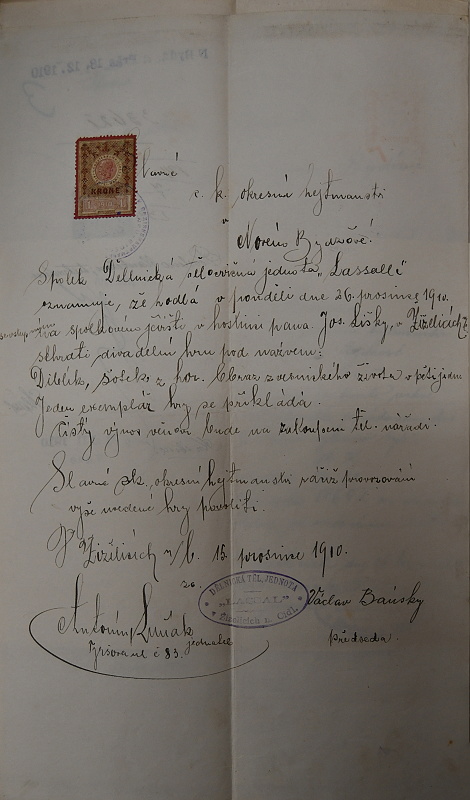 Slavné
c. k. okresní hejtmanství
v
Novém Bydžově.
Spolek Dělnická tělocvičná jednota "Lassalle"
oznamuje, že hodlá v pondělí dne 26. prosince 1910.
na spolkovém jevišti v hostinci pana Jos. Lišky, v Žiželicích
sehrati divadelní hru pod názvem:
Diblík, šotek z hor. Obraz z vesnického života v pěti jedn
Jeden exemplář hry se přikládá.
Čistý výnos věnován bude na zakoupení těl. nářadí.
Slavné c.k. okresní hejtmanství račiž provozování
výše uvedené hry povoliti.
V Žiželicích n/C. 15. prosince 1910.
za
DĚLNICKÁ TĚL. JEDNOTA
Žiželicích n. Cidl.
Antonín
jednatel
č 83.
Václav Bánský
předseda.
KRONE
13. 12. 1910